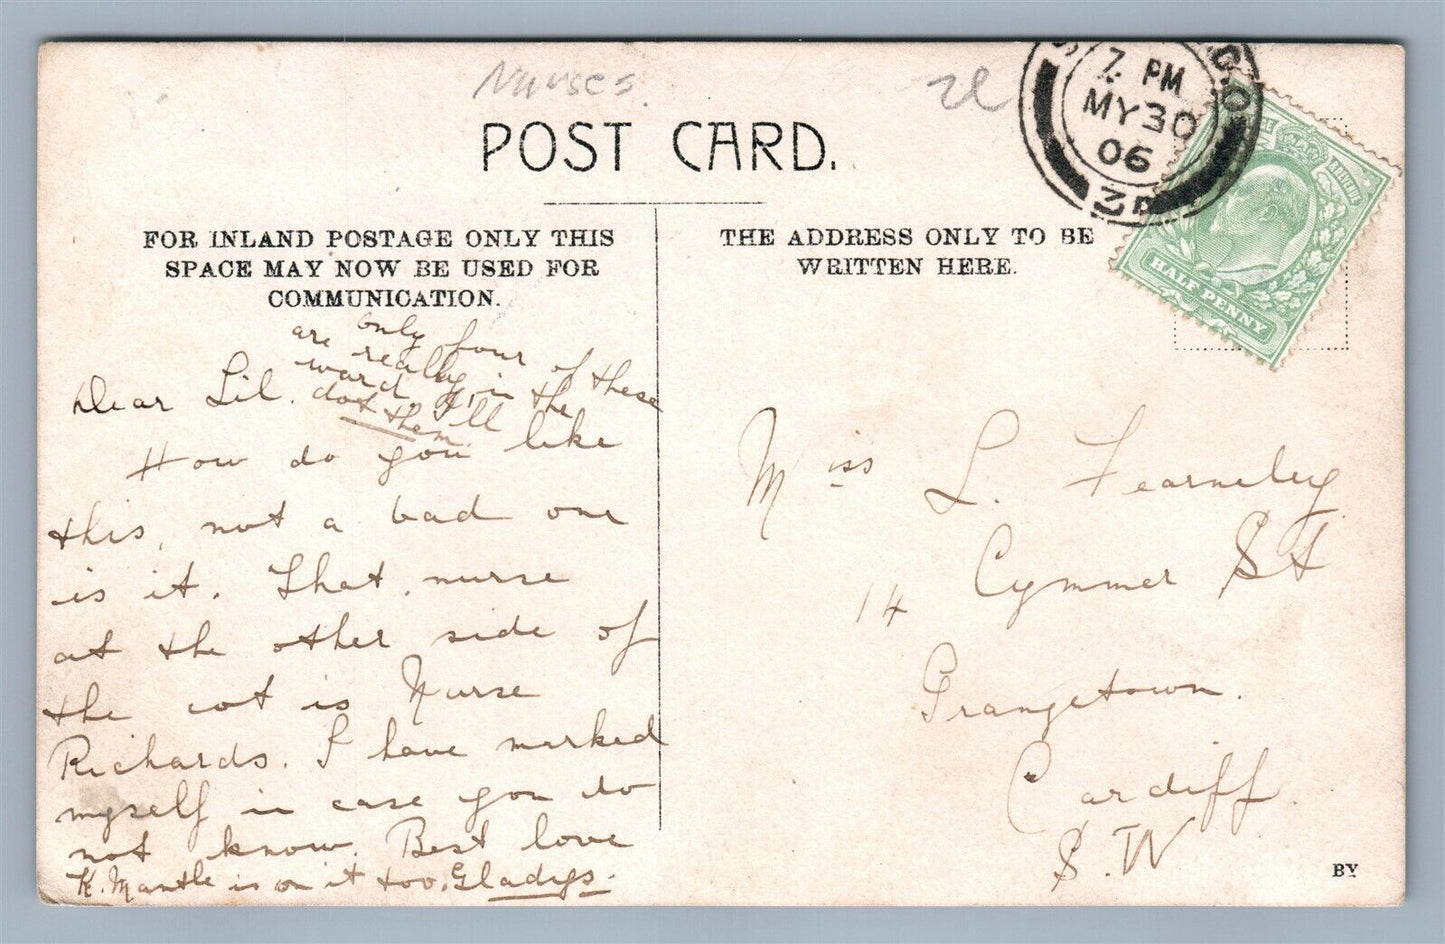 Nurses
POST CARD.
7. PM
MY 30
06
HALF PENNY
FOR INLAND POSTAGE ONLY THIS
SPACE MAY NOW BE USED FOR
COMMUNICATION.
THE ADDRESS ONLY TO BE
WRITTEN HERE.
only four of these
are really in the
ward, I'll
dot them.
Dear Lil.
How do you like
this, not a bad one
is it. That nurse
at the other side of
the cot is Nurse
Richards. I have marked
myself in case you do
not know. Best love
K. Mantle is on it too. Gladys.
Miss L. Fearneley
14 Cymmer St
Grangetown.
Cardiff.
S. W
BY